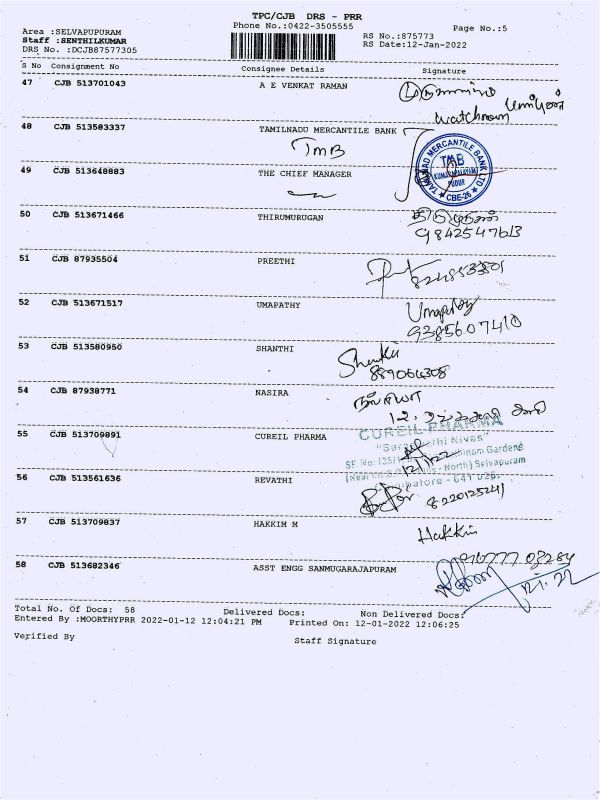 TPC/CJB DRS - PRR
Phone No.:0422-3505555
Page No.:5
Area :SELVAPUPURAM
Staff :SENTHILKUMAR
DRS No. :DCJB87577305
RS No.:875773
RS Date:12-Jan-2022
S No Consignment No Consignee Details Signature
47 CJB 513701043 A E VENKAT RAMAN
watchman
48 CJB 513583337 TAMILNADU MERCANTILE BANK
TMB
TAMILNAD MERCANTILE BANK LTD
TMB
PUDUR
CBE-26
49 CJB 513648883 THE CHIEF MANAGER
50 CJB 513671466 THIRUMURUGAN
9842547613
51 CJB 87935504 PREETHI
52 CJB 513671517 UMAPATHY
Umapathy
9385607410
53 CJB 513580950 SHANTHI
54 CJB 87938771 NASIRA
55 CJB 513709891 CUREIL PHARMA
CUREIL PHARMA
Nivas"
Gardens
North) Selvapuram
12/1/22
56 CJB 513561636 REVATHI
8220125241
57 CJB 513709837 HAKKIM M
Hakkim
58 CJB 513682346 ASST ENGG SANMUGARAJAPURAM
Total No. Of Docs: 58 Delivered Docs: Non Delivered Docs:
Entered By :MOORTHYPRR 2022-01-12 12:04:21 PM Printed On: 12-01-2022 12:06:25
Verified By Staff Signature